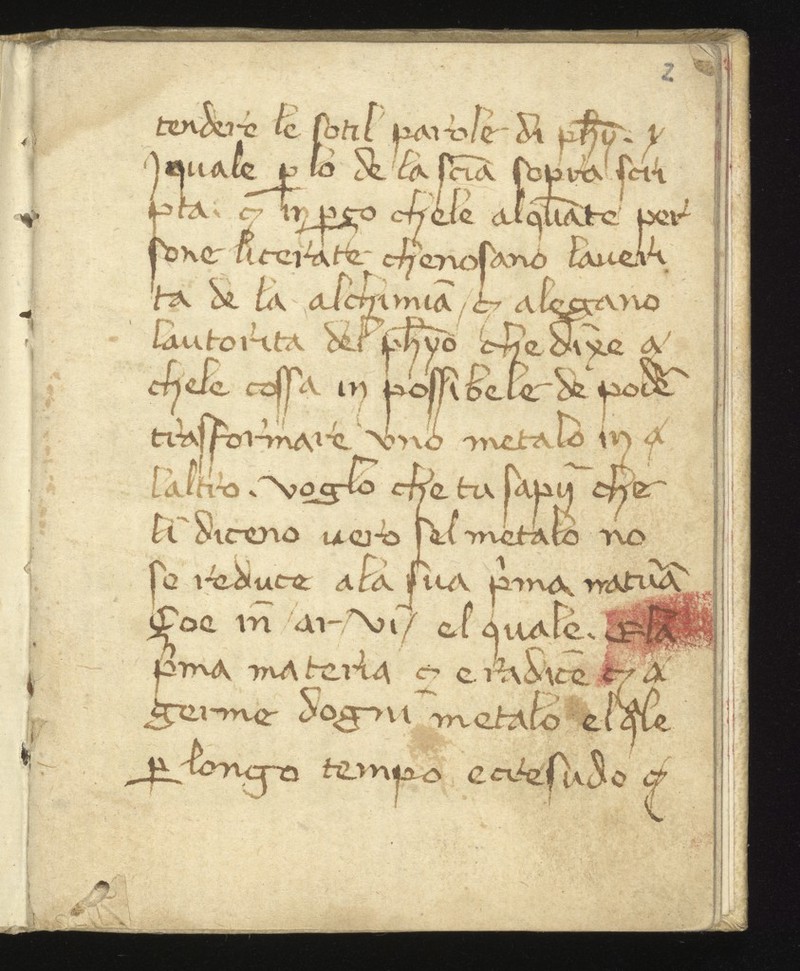 2
tendere le sotil parole di phỹ. 
quale p̱ lo de la scīa sopra scri
pta. ꝫ in pṟgo chele alquāte per
sone literate chenosano laueri
ta de la alchimiā / ꝫ alegano
lautorita del phỹo che dixe
chele cossa in possibele de podē
trasformare vno metalo in
laltro. voglo che tu sapij̄ che
li diceno uero sel metalo no
se reduce ala sua p̄ma natuā
Çoe in̄ /ar/vi/ el quale. Ela
p̄ma materia ꝫ e radicē ꝫ
germe dogni metalo elq̄le
p̱ longo tempo e cresudo ꝫ